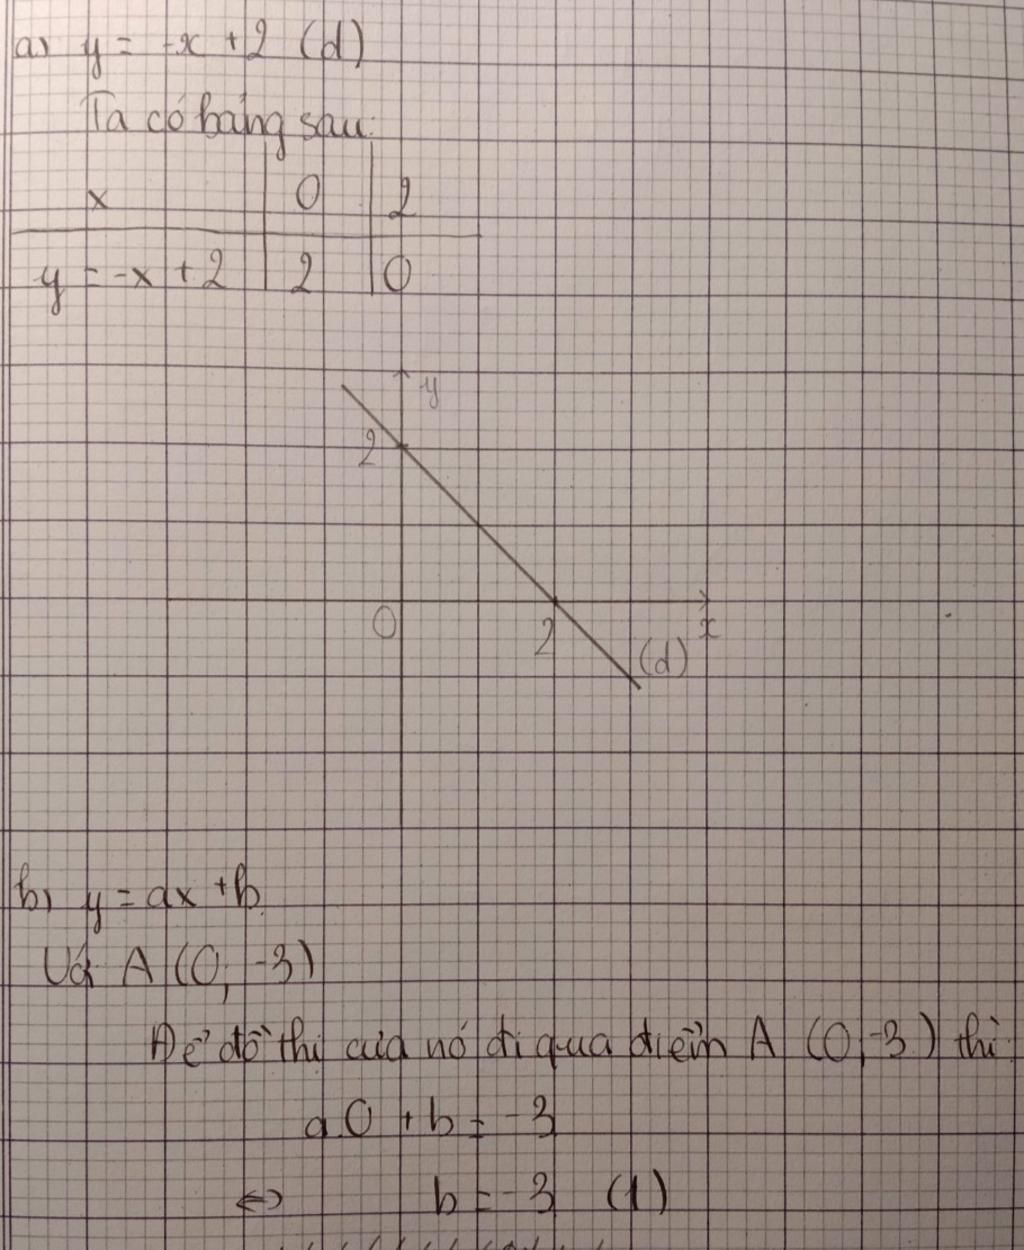 a) y = -x + 2 (d)
Ta có bảng sau:
x | 0 | 2
y = -x + 2 | 2 | 0
y
2
0
2
x
(d)
b) y = ax + b
Với A (0; -3)
Để đồ thị của nó đi qua điểm A (0; -3) thì:
a.0 + b = -3
⇔ b = -3 (1)